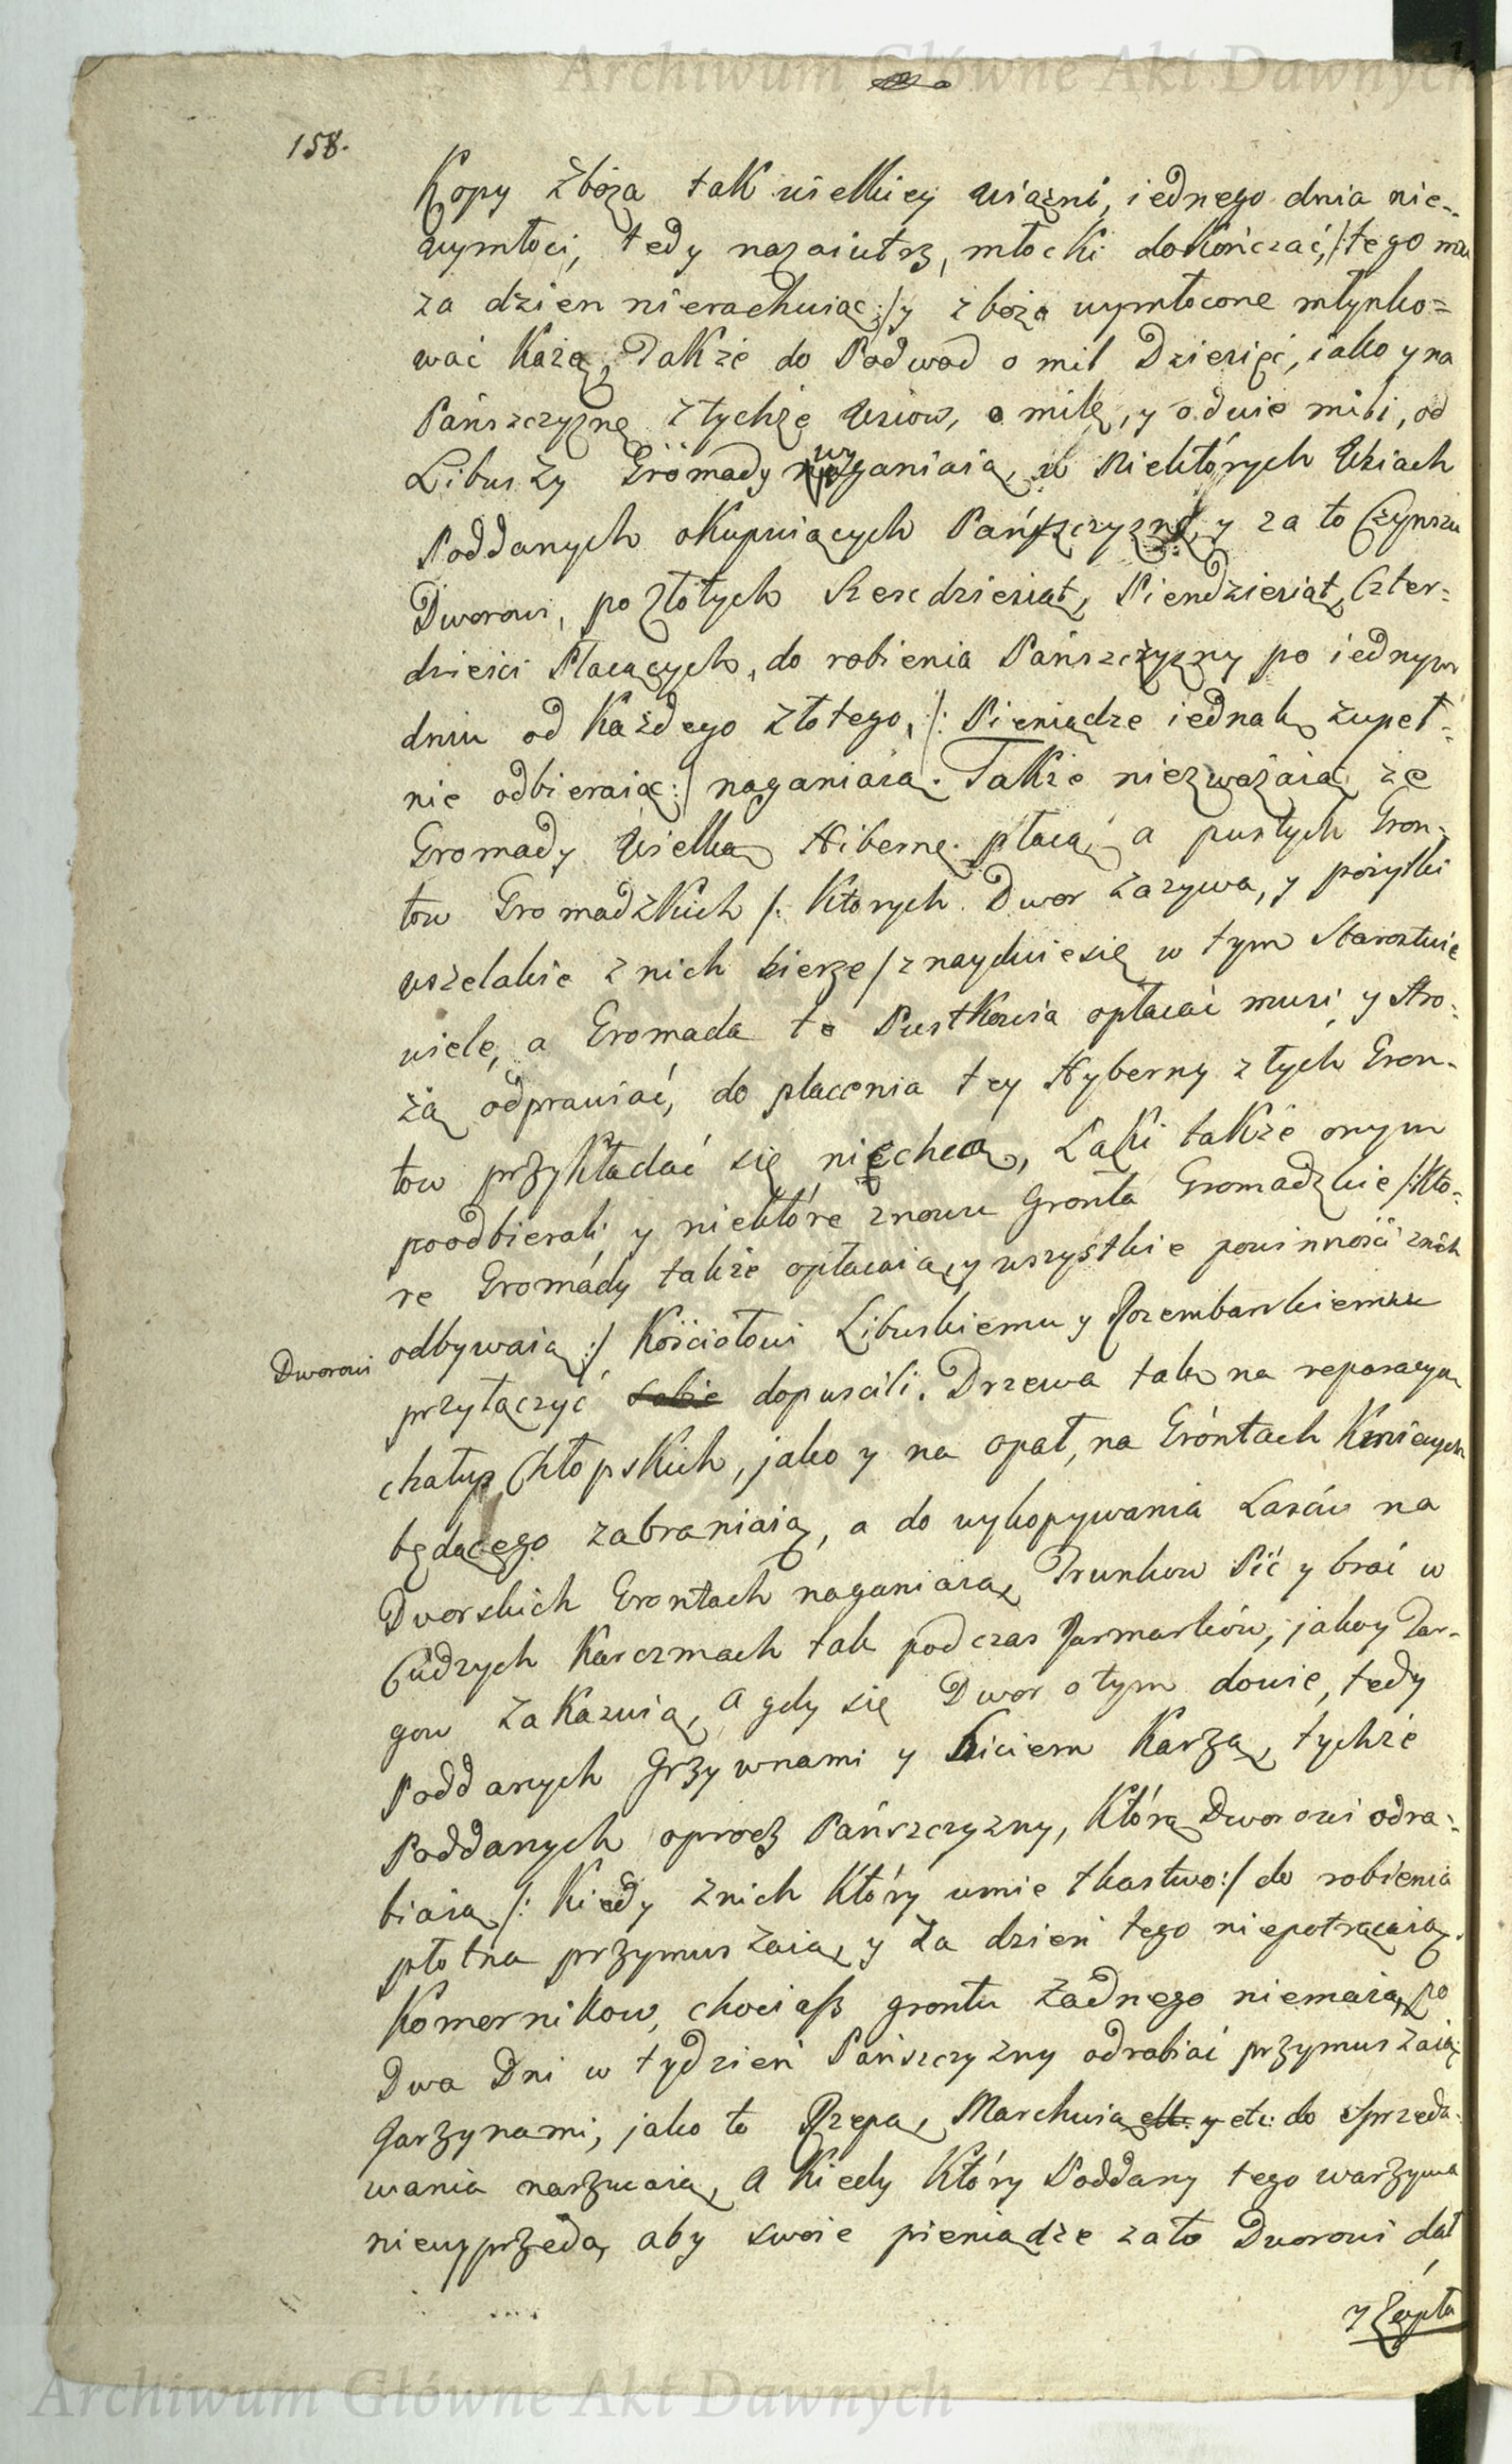 Archiwum Główne Akt Dawnych
158.
Kopy zboża tak wielkiey wiązni, iednego dnia nie-
wymłoci, tedy nazaiutrz, młocki dokończać, /:tego mu
za dzien nierachuiąc:/ y zboża wymłocone młynko=
wać każą, Także do Podwod o mil Dziesięć, iako y na
Pańszczyznę z tychże Wsiow, o milę, y o dwie mili, od
Libuszy Gromady wyganiaią, w Niektórych Wsiach
Poddanych okupuiących Pańszczyznę, y za to Czynszu
Dworowi, po złotych Szescdziesiąt, Piendziesiąt, Czter=
dzieści Płacących, do robienia Pańszczyzny po iednym
dniu od Każdego złotego, /: Pieniądze iednak zupeł=
nie odbieraiąc:/ naganiaią. Także niezważaiąc że
Gromady Wielką Hibernę płacą, a pustych Gron-
tow Gromadzkich /: Ktorych Dwor zazywa, y pożytki
wszelakie z nich bierze/ znayduie się w tym Starostwie
wiele, a Gromada te Pustkowia opłacać musi, y Stro=
żą odprawiać, do płacenia tey Hyberny z tych Gron-
tow przykładać się niechcą, Łąki także onym
poodbierali, y niektóre znowu Gronta Gromadzkie /:Kto=
re Gromady także opłacaią, y wszystkie powinności z nich
odbywaią:/ Kościołowi Libuskiemu y Rozembarkiemu
Dworowi
przyłączyć sobie dopuscili. Drzewa tak na reparacyą
chałup Chłopskich, jako y na opał, na Gróntach Kmiecych
będącego zabraniaią, a do wykopywania Lasów na
Dworskich Grontach naganiaią, Trunkow Pić y brać w
Cudzych Karczmach tak podczas Jarmarków, jako y Tar-
gow zakazuią, A gdy się Dwor o tym dowie, tedy
Poddanych Grzywnami y biciem Karzą, tychże
Poddanych oprocz Pańszczyzny, Którą Dworowi odra=
biaią /: Kiedy z nich Który umie tkastwo:/ do robienia
płotna przymuszaią, y za dzień tego niepotrącaią.
Komornikow, chociaß grontu żadnego niemaią, po
Dwa Dni w tydzień Pańszczyzny odrabiać przymuszaią
Jarzynami, jako to Rzepą, Marchwią ett. y etc: do sprzeda=
wania narzucaią, A Kiedy Który Poddany tego warzywa
niewyprzeda, aby swoie pieniądze zato Dworowi dał
Archiwum Główne Akt Dawnych